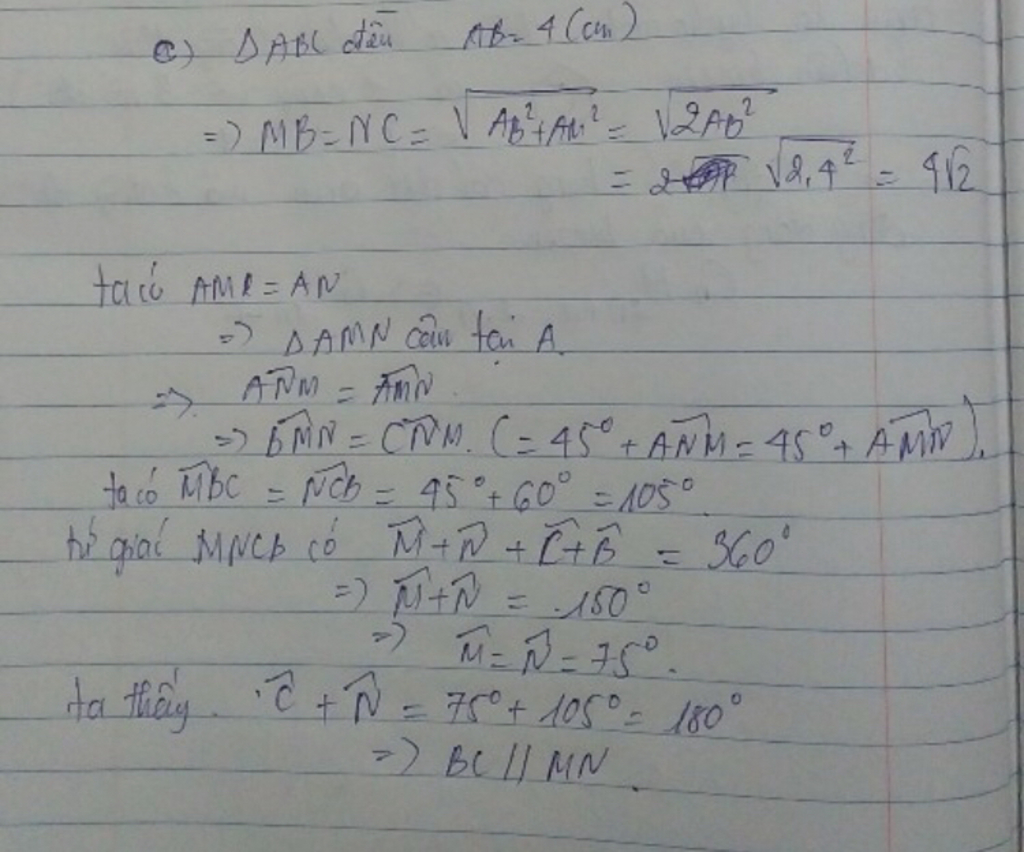 c) ΔABC đều AB = 4 (cm)
=> MB = NC = √(AB² + AM²) = √(2AB²)
= 2 √(2.4²) = 4√2
ta có AM = AN
=> ΔAMN cân tại A.
=> \widehat{ANM} = \widehat{AMN}.
=> \widehat{BMN} = \widehat{CNM}. (= 45° + \widehat{ANM} = 45° + \widehat{AMN}).
ta có \widehat{MBC} = \widehat{NCB} = 45° + 60° = 105°
tứ giác MNCB có \widehat{M} + \widehat{N} + \widehat{C} + \widehat{B} = 360°
=> \widehat{M} + \widehat{N} = 150°
=> \widehat{M} = \widehat{N} = 75°.
ta thấy. \widehat{C} + \widehat{N} = 75° + 105° = 180°
=> BC // MN.